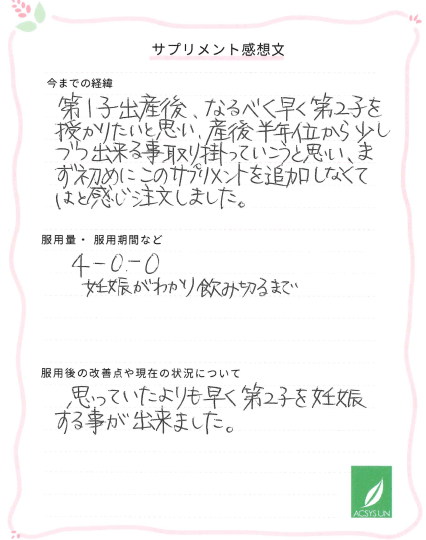 サプリメント感想文
今までの経緯
第1子出産後、なるべく早く第2子を
授かりたいと思い、産後半年位から少し
づつ出来る事取り掛っていこうと思い、ま
ず初めにこのサプリメントを追加しなくて
はと感じ注文しました。
服用量・服用期間など
4-0-0
妊娠がわかり飲み切るまで
服用後の改善点や現在の状況について
思っていたよりも早く第2子を妊娠
する事が出来ました。
ACSYSLIN